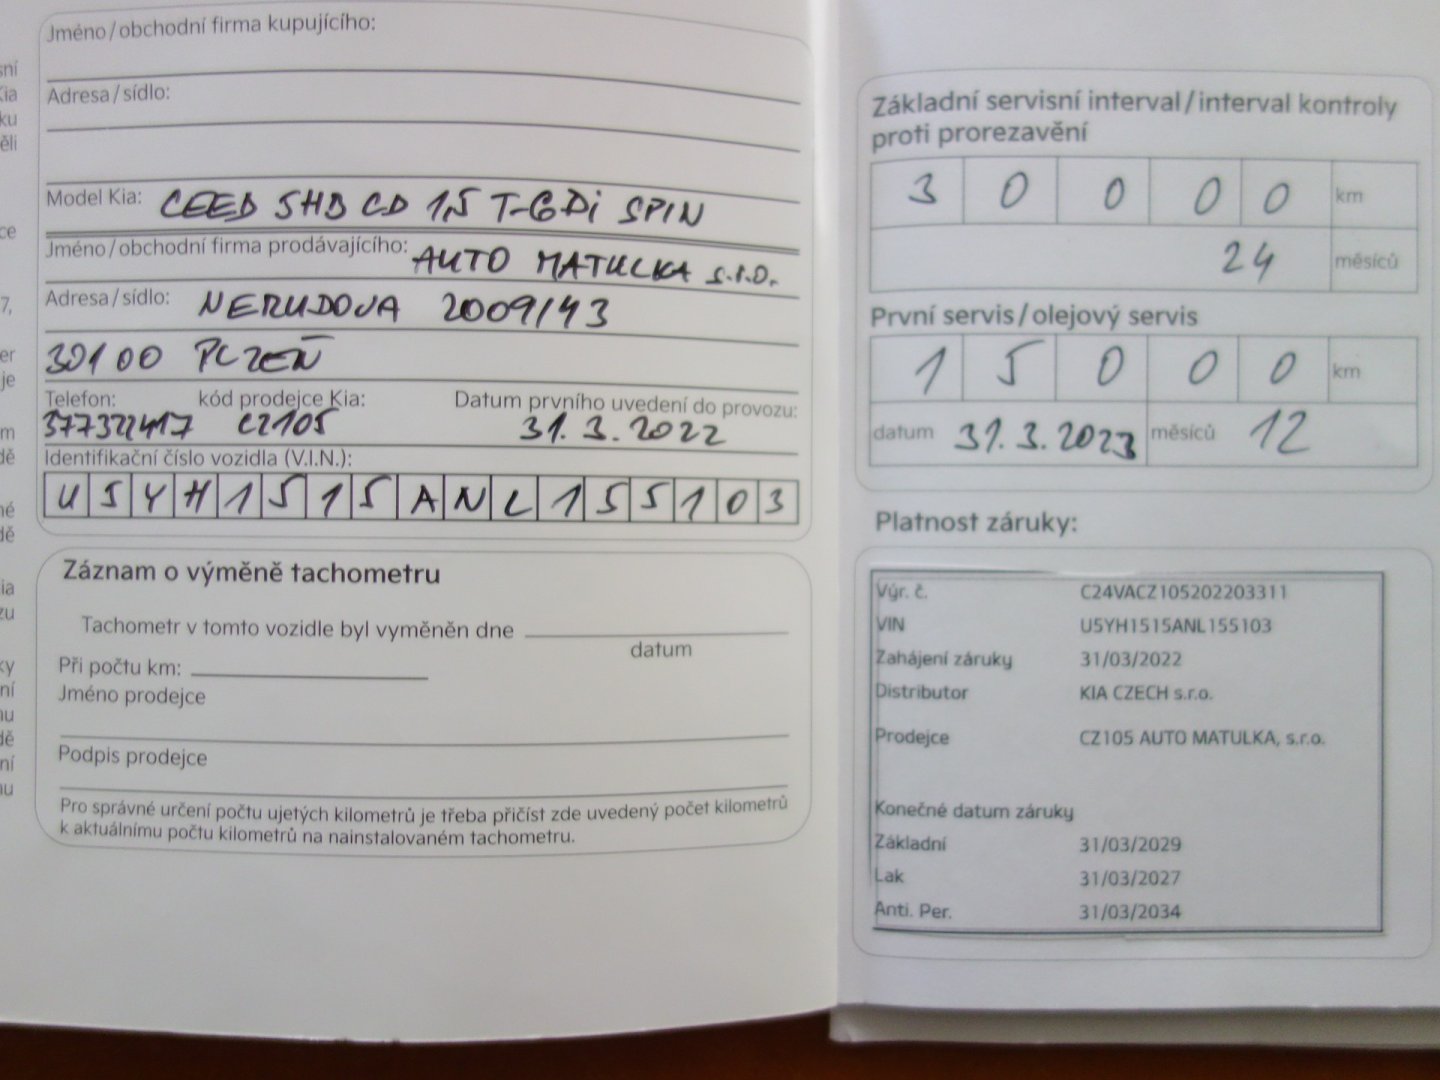 Jméno/obchodní firma kupujícího:
Adresa/sídlo:
Model Kia: CEED SHB CD 1,5 T-GDi SPIN
Jméno/obchodní firma prodávajícího: AUTO MATULKA s.r.o.
Adresa/sídlo: NERUDOVA 2009/43
30100 PLZEŇ
Telefon: kód prodejce Kia: Datum prvního uvedení do provozu:
377322417 CZ105 31.3.2022
Identifikační číslo vozidla (V.I.N.):
U5YH1515ANL155103
Záznam o výměně tachometru
Tachometr v tomto vozidle byl vyměněn dne
datum
Při počtu km:
Jméno prodejce
Podpis prodejce
Pro správné určení počtu ujetých kilometrů je třeba přičíst zde uvedený počet kilometrů
k aktuálnímu počtu kilometrů na nainstalovaném tachometru.
Základní servisní interval/interval kontroly
proti prorezavění
3 0 0 0 0 km
24 měsíců
První servis/olejový servis
1 5 0 0 0 km
datum 31.3.2023 měsíců 12
Platnost záruky:
Výr. č. C24VACZ105202203311
VIN U5YH1515ANL155103
Zahájení záruky 31/03/2022
Distributor KIA CZECH s.r.o.
Prodejce CZ105 AUTO MATULKA, s.r.o.
Konečné datum záruky
Základní 31/03/2029
Lak 31/03/2027
Anti. Per. 31/03/2034